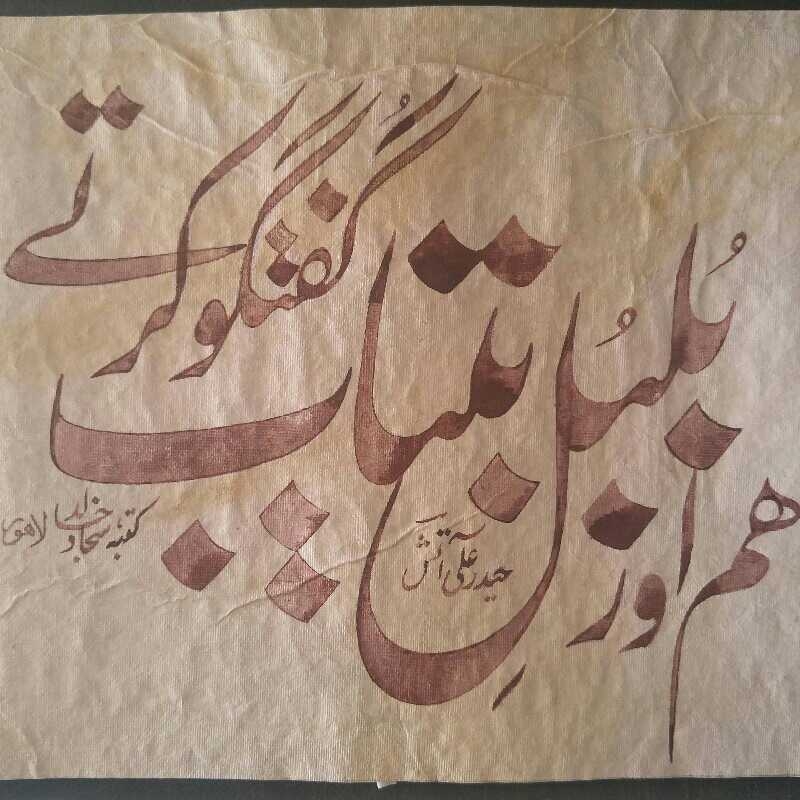 ہم اور بُلبُلِ بیتاب گفتگو کرتے
حیدر علی آتش
کتبہ سجاد خالد لاہور